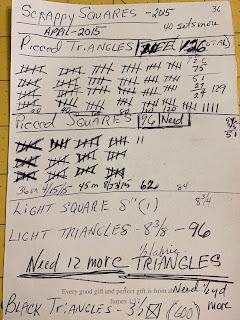 SCRAPPY SQUARES - 2015
36
APRIL - 2015
40 sets more
Pieced TRIANGLES
126
75
51
129
Pieced SQUARES 96 Need
96
45
51
36 on 4/15/15 45 on 8/23/15 62 84
LIGHT SQUARE 8" (1) 8 3/4
LIGHT TRIANGLES - 8 3/8 - 96
Need 12 more TRIANGLES
Every good gift and perfect gift is from
James 1:17
Need 1/2 yd
more
BLACK TRIANGLES - 3 1/2